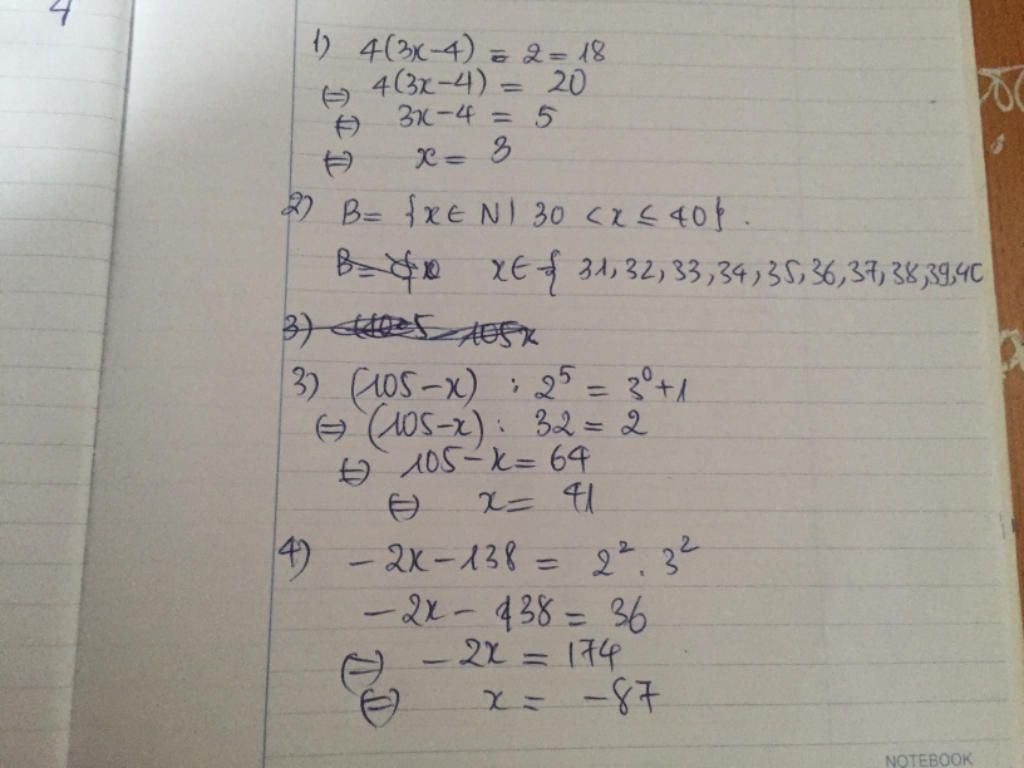 4
1) 4(3x-4) = 2 = 18
⇔ 4(3x-4) = 20
⇔ 3x-4 = 5
⇔ x = 3
2) B = {x ∈ N | 30 < x ≤ 40}.
x ∈ { 31, 32, 33, 34, 35, 36, 37, 38, 39, 40
3)
3) (105-x) : 2⁵ = 3⁰+1
⇔ (105-x) : 32 = 2
⇔ 105-x = 64
⇔ x = 41
4) -2x-138 = 2² . 3²
-2x-138 = 36
⇔ -2x = 174
⇔ x = -87
NOTEBOOK